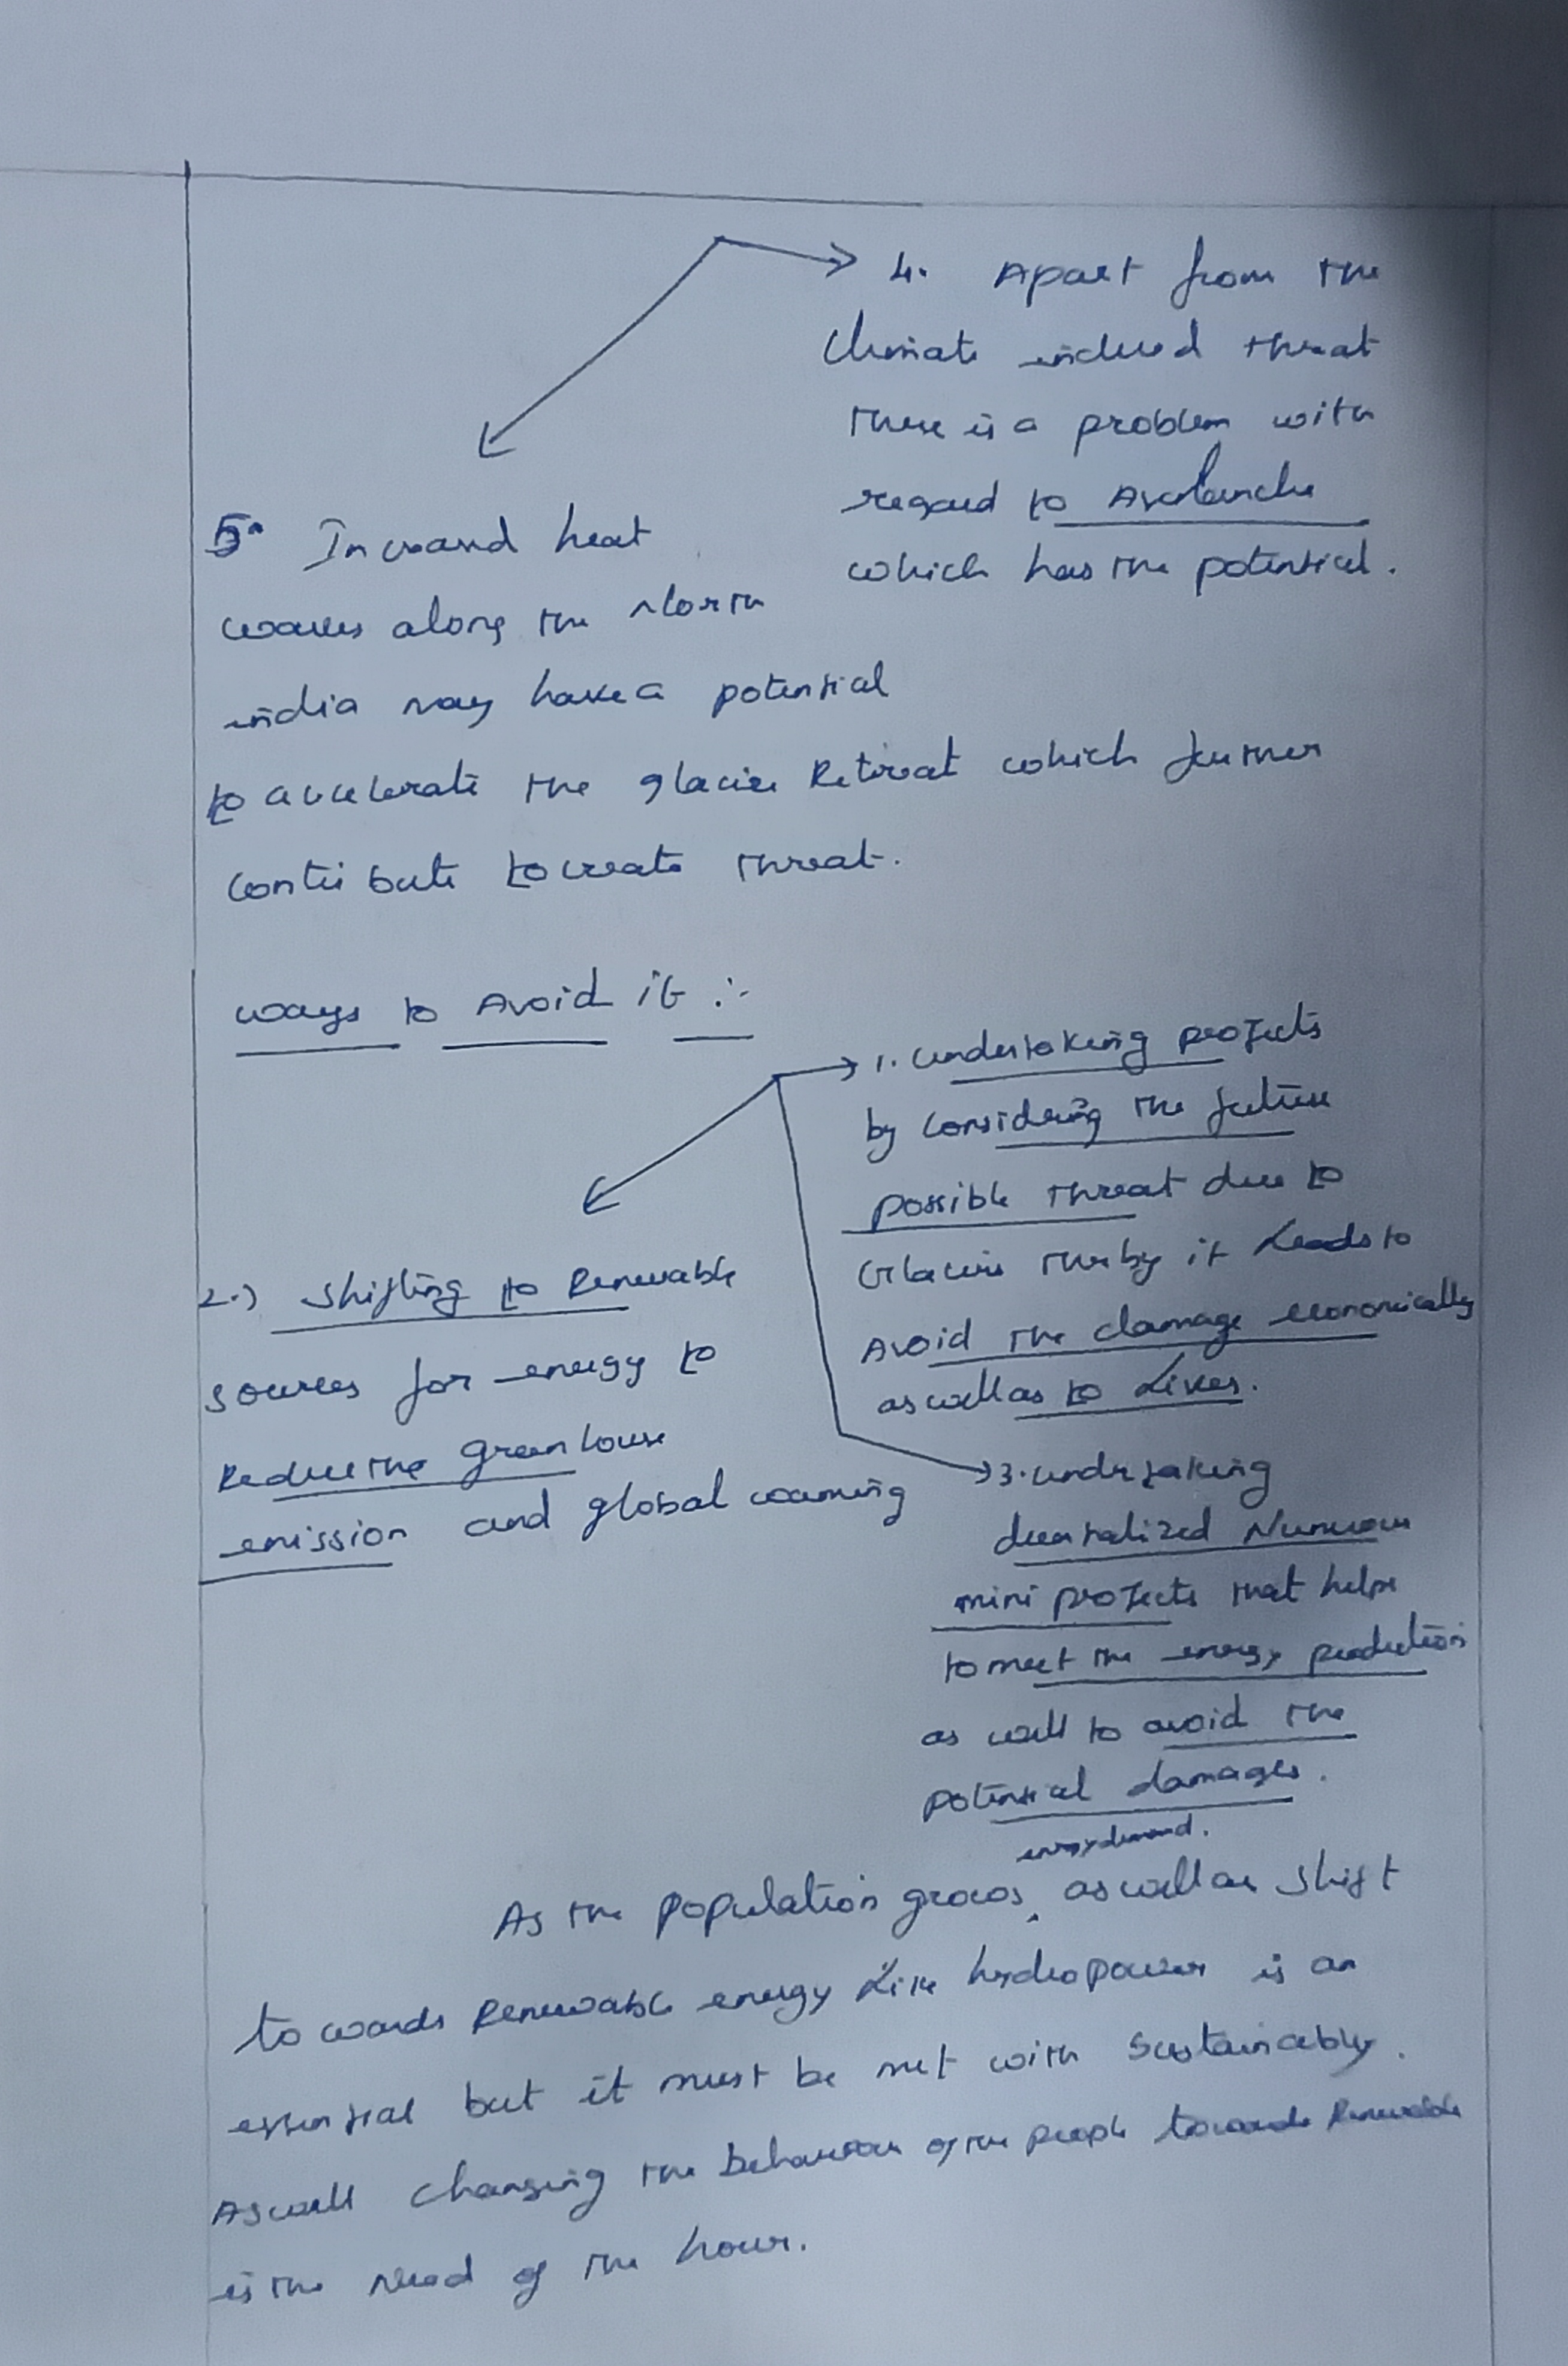 4. Apart from the
climate induced threat
there is a problem with
regard to Avalanche
which has the potential.
5. Increased heat
waves along the North
india may have a potential
to accelerate the glacier Retreat which further
contribute to create threat.
ways to Avoid it :-
1. undertaking projects
by considering the future
possible threat due to
Glacier thereby it Leads to
Avoid the damage economically
as well as to Lives.
2.) Shifting to Renewable
sources for energy to
Reduce the green house
emission and global warming
3. undertaking
decentralized Numerous
mini projects that helps
to meet the energy production
as well to avoid the
potential damages.
energy demand.
As the population grows, as well as shift
towards Renewable energy Like hydropower is an
essential but it must be met with sustainably.
As well changing the behaviour of the people towards Renewable
is the need of the hour.